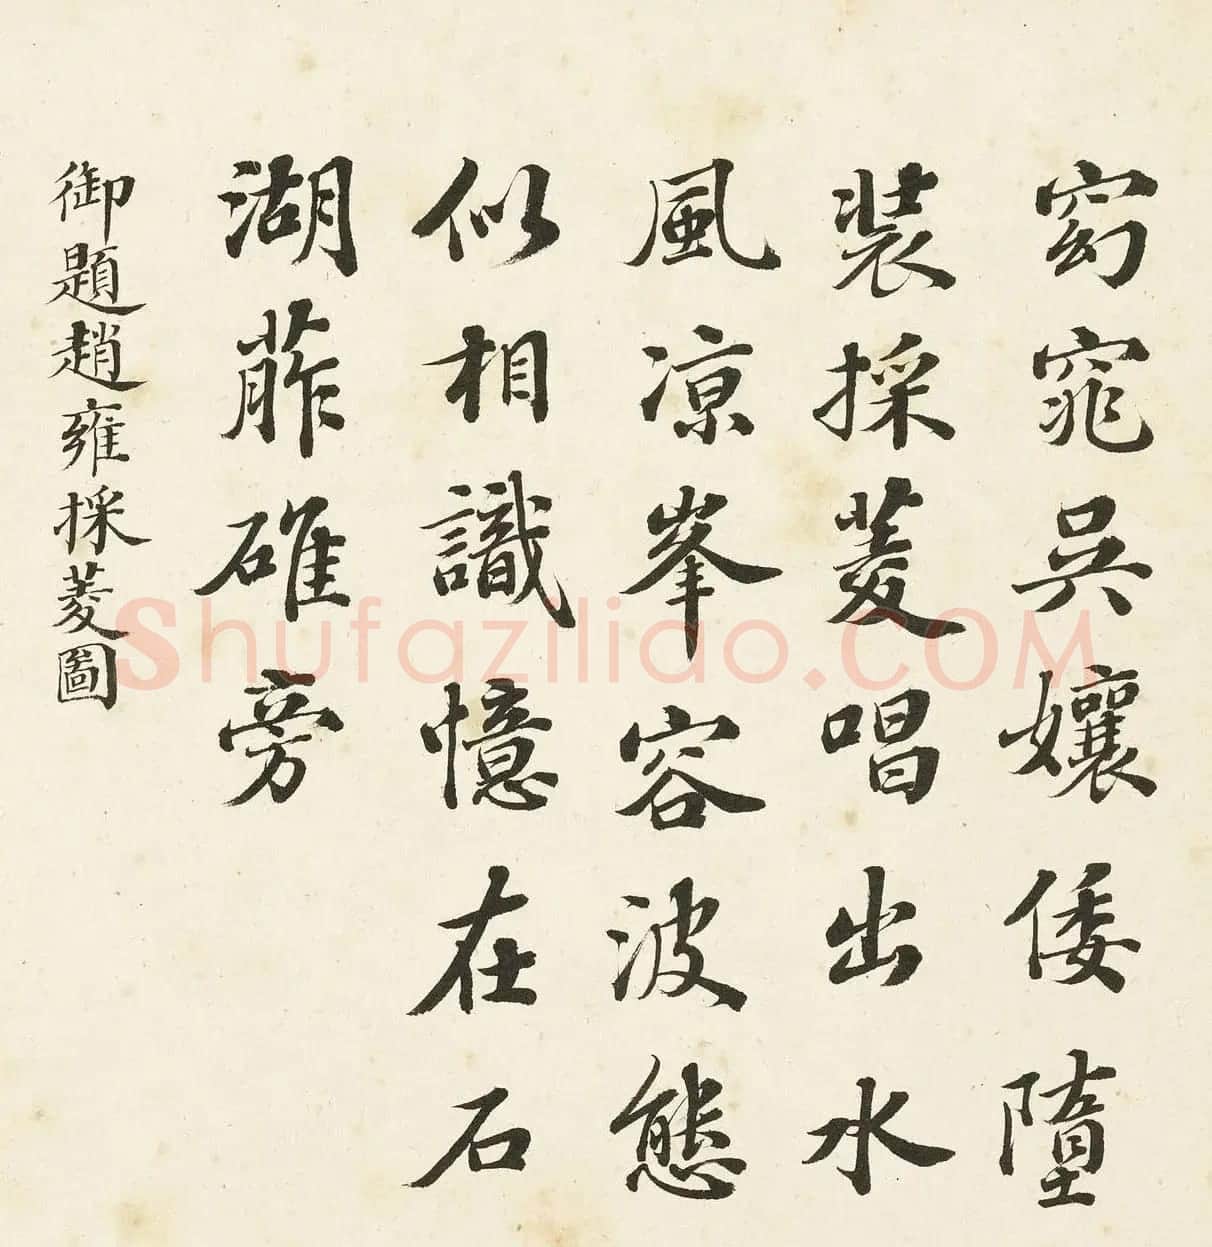 窈窕吳孃倭墮
裝採菱唱出水
風涼峯容波態
似相識憶在石
湖䔘碓旁
御題趙雍採菱圖
Shufaziliao.COM